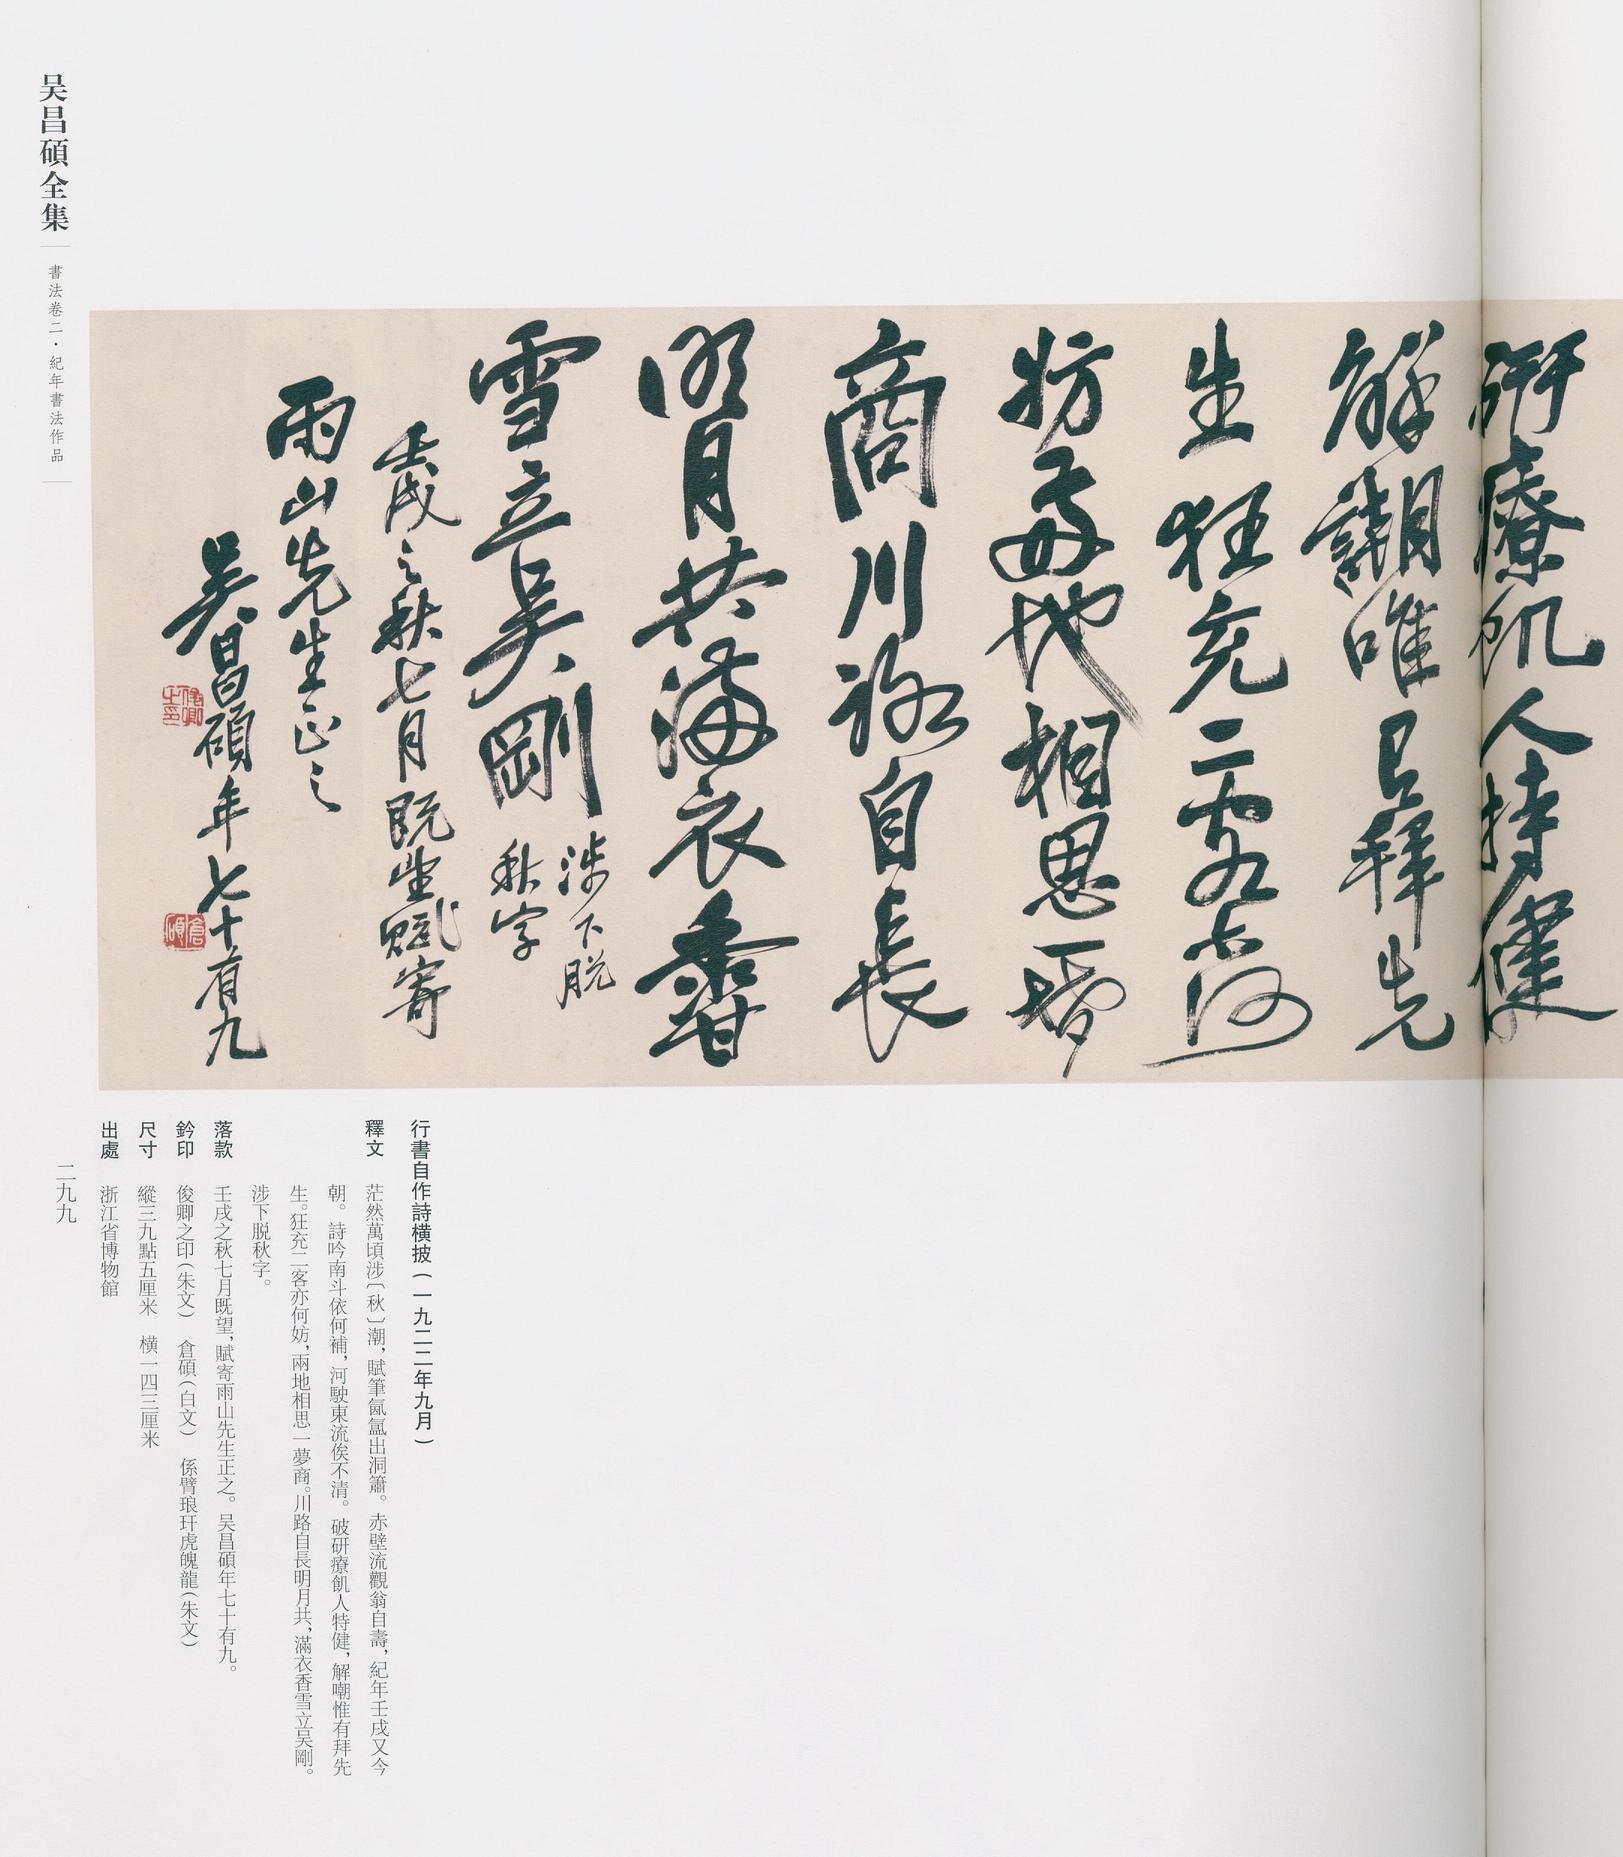 研療飢人特健
解謿唯㠯拜先
生狂充二客亦何
妨兩地相思一夢
商川路自長
明月共滿衣香
雪立吳剛
涉下脫
秋字
壬戌之秋七月既望賦寄
雨山先生正之
吳昌碩年七十有九
俊卿之印
倉碩
吴昌碩全集
書法卷二·紀年書法作品
行書自作詩橫披(一九二二年九月)
釋文 茫然萬頃涉〔秋〕潮,賦筆氤氳出洞簫。赤壁流觀翁自壽,紀年壬戌又今
朝。詩吟南斗依何補,河駛東流俟不清。破研療飢人特健,解嘲惟有拜先
生。狂充二客亦何妨,兩地相思一夢商。川路自長明月共,滿衣香雪立吴剛。
涉下脱秋字。
落款 壬戌之秋七月既望,賦寄雨山先生正之。吴昌碩年七十有九。
鈐印 俊卿之印(朱文) 倉碩(白文) 係臂琅玕虎魄龍(朱文)
尺寸 縱三九點五厘米 橫一四三厘米
出處 浙江省博物館
二九九